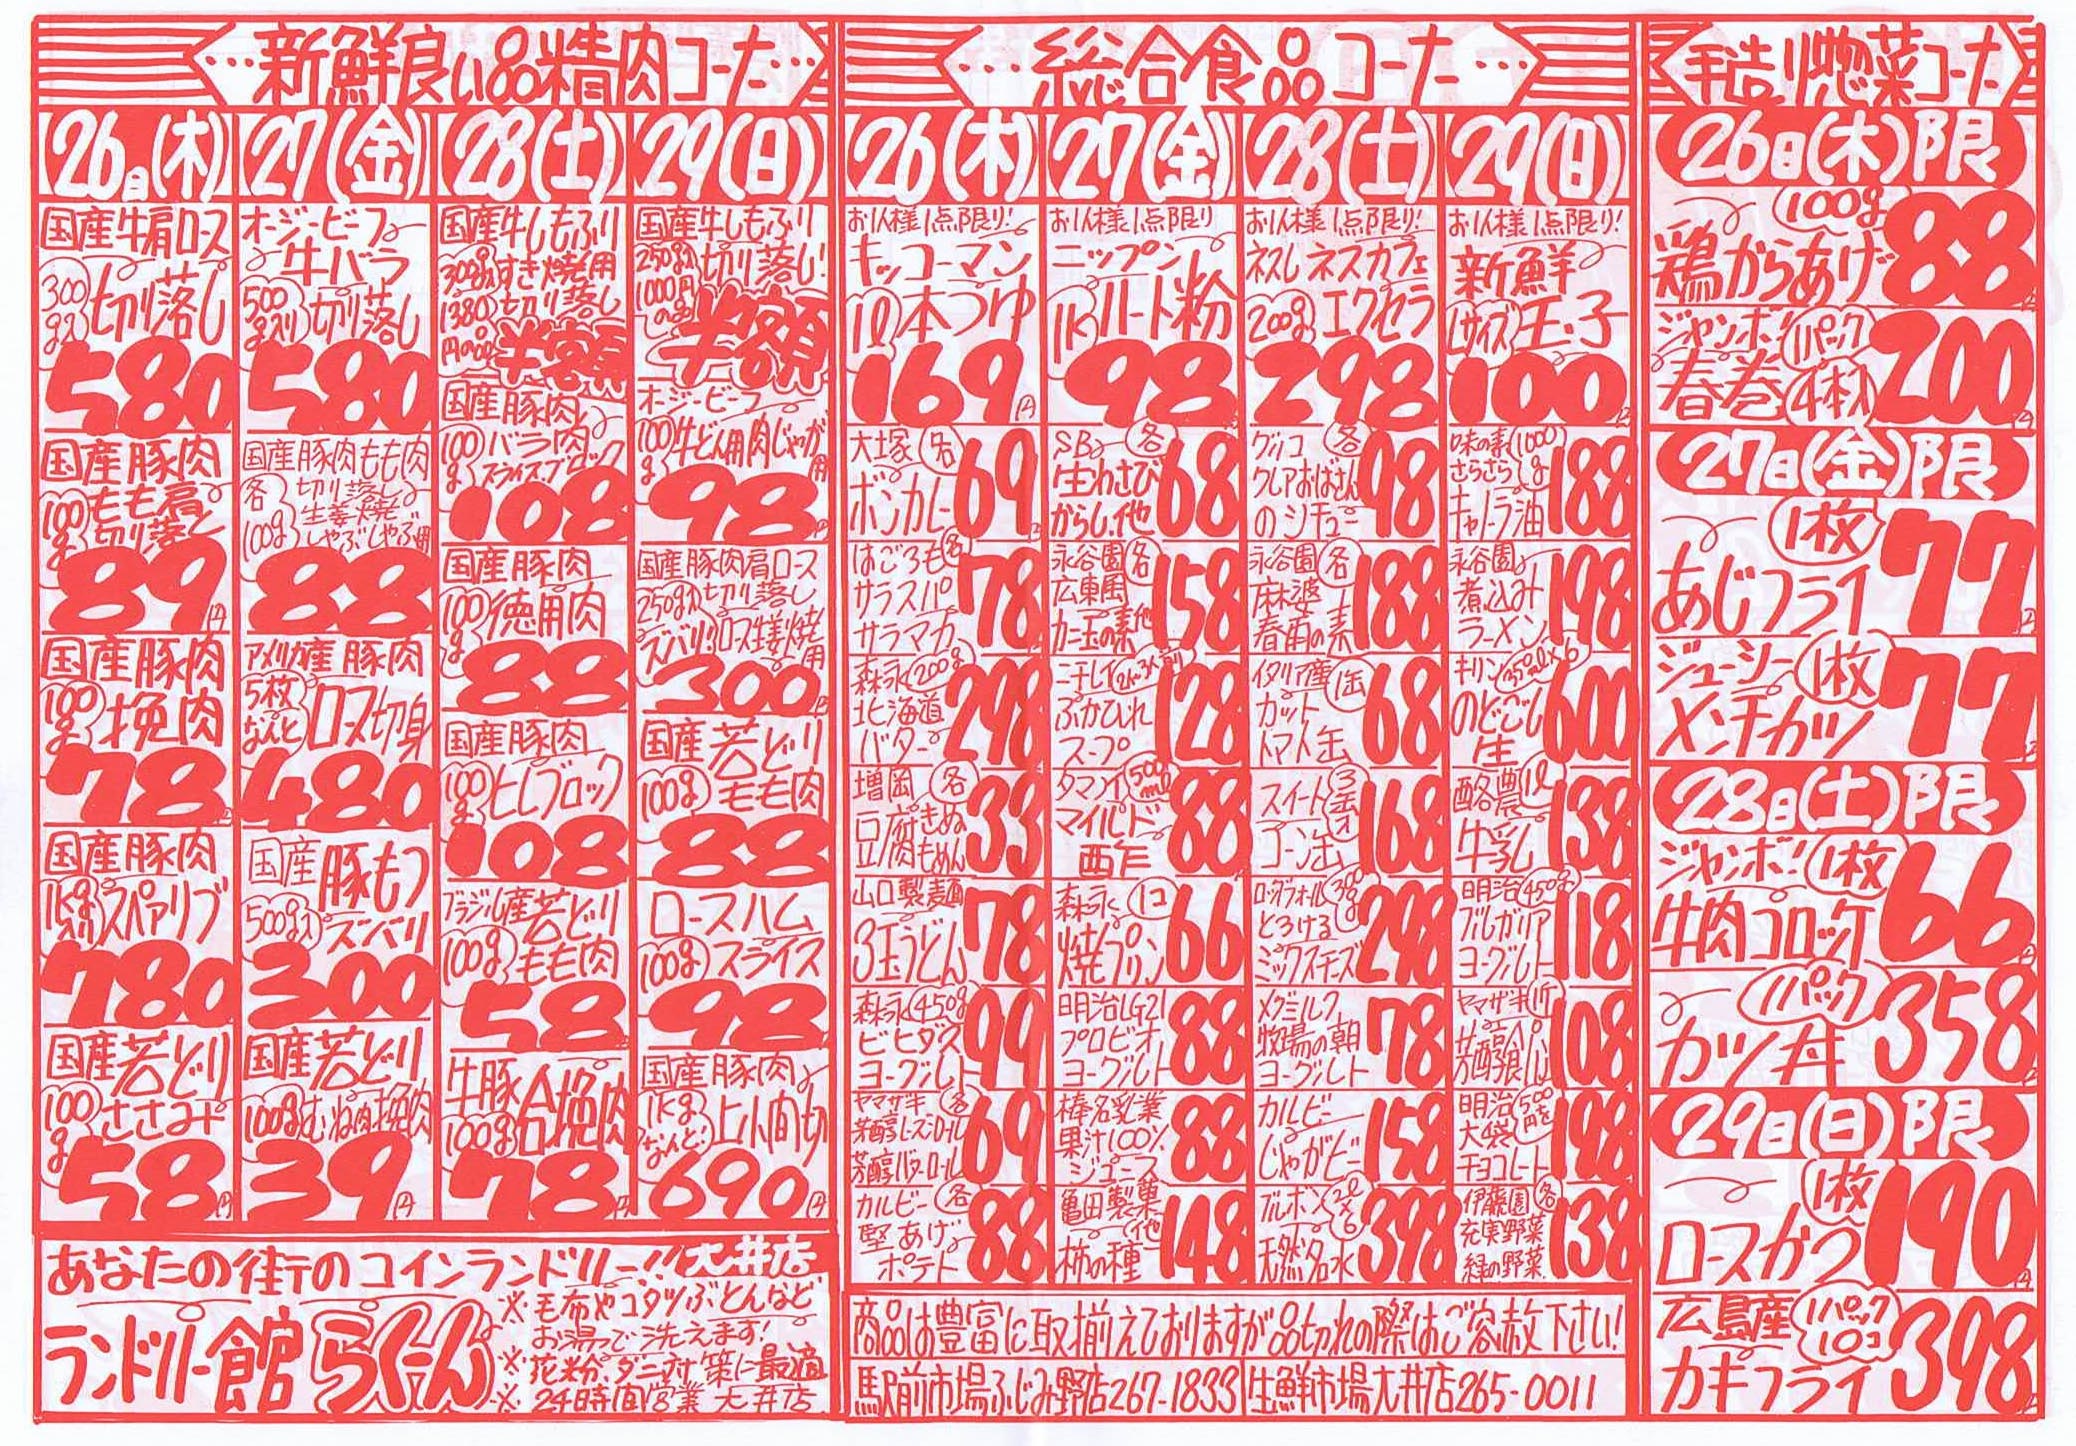 …新鮮良い品精肉コーナー…
26日(木)
国産牛肩ロース
300g入
切り落し
580円
国産豚肉
100g
もも肩
切り落し
89円
国産豚肉
100g
挽肉
78円
国産豚肉
1kg入り
スペアリブ
780
国産若どり
100g
ささみ
58円
27(金)
オージービーフ
牛バラ
500g入り
切り落し
580
国産豚肉もも肉
各100g
切り落し
生姜焼
しゃぶしゃぶ用
88
アメリカ産豚肉
5枚なんと
ロース切身
480
国産豚もつ
500g入
ズバリ
300
国産若どり
100g
むね肉挽肉
39円
28(土)
国産牛しもふり
300g入
すき焼用
切り落し
1380円の品
半額
国産豚肉
100g
バラ肉
スライスブロック
108
国産豚肉
100g
徳用肉
88
国産豚肉
100g
ヒレブロック
108
ブラジル産若どり
100g
もも肉
58
牛豚合挽肉
100g
78円
29(日)
国産牛しもふり
250g入
切り落し!
1000円の品
半額
オージービーフ
100g
牛どん用肉じゃが用
98円
国産豚肉肩ロース
250g入
切り落し
ズバリ!ロース生姜焼用
300円
国産若どり
100g
もも肉
88
ロースハム
100g
スライス
98
国産豚肉
1kg
なんと!
上小間切
690円
あなたの街のコインランドリー!!大井店
ランドリー館
らくーん
※毛布やコタツぶとんなど
お湯で洗えます!
※花粉、ダニ対策に最適
※24時間営業 大井店
…総合食品コーナー…
26(木)
お1人様1点限り!
キッコーマン
1ℓ
本つゆ
169円
大塚
各
ボンカレー
69円
はごろも
各
サラスパ
サラマカ
78
森永
200g
北海道
バター
298
増岡
各
豆腐きぬ
もめん
33
山口製麺
3玉うどん
78
森永
450g
ビヒダス
ヨーグルト
99
ヤマザキ
各
芳醇レーズンロール
芳醇バターロール
69
カルビー
各
堅あげ
ポテト
88
27(金)
お1人様1点限り
ニップン
1K
ハート粉
98
SB
各
生わさび
からし、他
68
永谷園
各
広東風
カニ玉の素他
158
ニチレイ
2〜3人前
ふかひれ
スープ
128
タマノイ
500ml
マイルド
酢
88
森永
1コ
焼プリン
66
明治LG21
プロビオ
ヨーグルト
88
榛名乳業
果汁100%
ジュース
88
亀田製菓
柿の種
他
148
28(土)
お1人様1点限り!
ネスレ ネスカフェ
200g
エクセラ
298
グリコ
各
クレアおばさん
のシチュー
98
永谷園
各
麻婆
春雨の素
188
イタリア産
1缶
カット
トマト缶
68
スイート
コーン缶
168
ローダフォール
とろける
ミックスチーズ
298
メグミルク
牧場の朝
ヨーグルト
78
カルビー
じゃがビー
158
ブルボン
2ℓ×6
天然名水
398
29(日)
お1人様1点限り!
新鮮
Lサイズ
玉子
100円
味の素
1000g
さらさら
キャノーラ油
188
永谷園
煮込み
ラーメン
198
キリン
350ml×6
のどごし
生
600
酪農
1ℓ
牛乳
138
明治
450g
ブルガリア
ヨーグルト
118
ヤマザキ
1斤
芳醇食パン
108
明治
500円を
大袋
チョコレート
198
伊藤園
各
充実野菜
緑の野菜
138
商品は豊富に取揃えておりますが品切れの際はご容赦下さい!
駅前市場ふじみ野店267-1833
生鮮市場大井店265-0011
手造り惣菜コーナー
26日(木)限
100g
鶏からあげ
88円
ジャンボ!
春巻
1パック
4本入
200円
27日(金)限
1枚
あじフライ
77円
ジューシー
1枚
メンチカツ
77円
28日(土)限
ジャンボ!
1枚
牛肉コロッケ
66円
1パック
カツ丼
358円
29日(日)限
1枚
ロースかつ
190円
広島産
1パック
10コ
カキフライ
398円